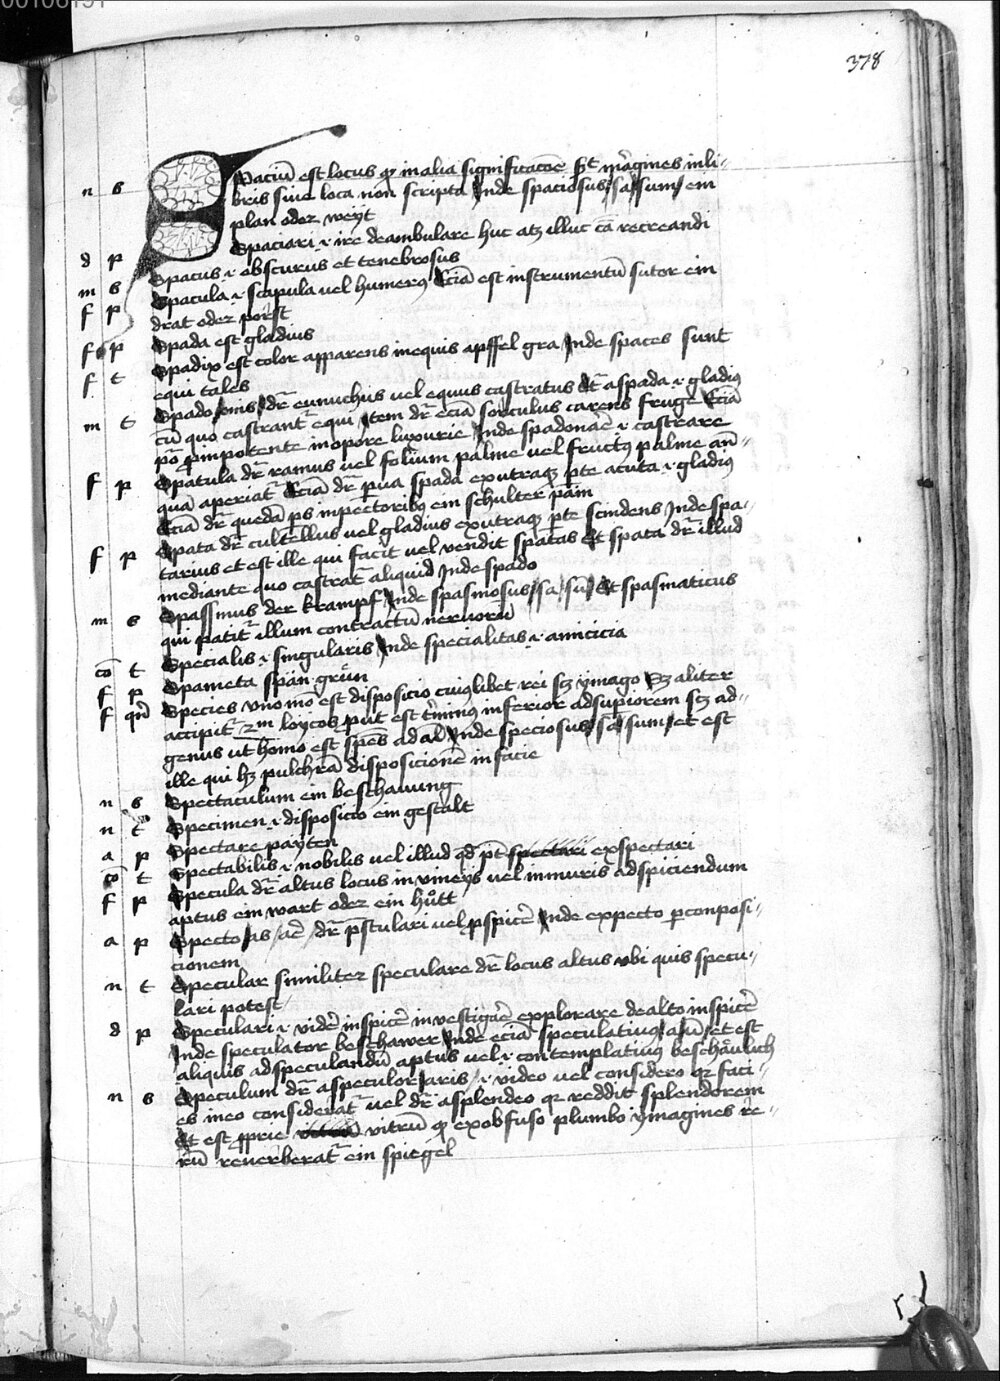 378
Spaciū est locus qꝫ in alia significatōe sūt m̄gines in li-
n s bris siue loca non scripta Inde spaciosus / sa / sum / ein
plan odeꝛ weyt
d p Spaciari .i. ire deambulare huc atqꝫ illuc cā recreandi
m s Spacus .i. obscurus et tenebrosus
f p Spacula .i. scapula uel humerꝰ Eciā est instrumentū sutor ein
drat odeꝛ porst
f p Spada est gladius
f t Spadix est color apparens in equis apffel gra Inde spaces sunt
equi tales
m t Spado / onis / dr̄ eunuchus uel equus castratus Et dr̄ a spada .i. gladiꝰ
cū quo castrant̄ equi Item dr̄ eciā sorculus carens fruge Eciā
pō p impotente in opore luxurie Inde spadonae .i. castrare
f p Spatula dr̄ ramus uel folium palme uel fructꝰ palme an̄-
quā aperiat̄ Eciā dr̄ pua spada ex utraqꝫ pte acuta .i. gladiꝰ
Eciā dr̄ quedā ps in pectoribꝰ ein schulter pain
f p Spata dr̄ cultellus uel gladius ex utraqꝫ pte scindens Inde spa-
tarius et est ille qui facit uel vendit spatas Et spata dr̄ illud
mediante quo castrat̄ aliquid Inde spado
m s Spassmus der krampf Inde spasmosus / sa / sū / Et spasmaticus
qui patit̄ illum contractū neruorū
cō t Specialis .i. singularis Inde specialitas .i. amicicia
f p Spameta spän grün
f qn̄ Species vno mō est disposicio cuiꝰlibet rei scꝫ ymago Scꝫ aliter
accipit̄ 2m loycos put est t̄minꝰ inferior ad supiorem scꝫ ad
genus ut homo est spēs ad aāl Inde speciosus / sa / sum / et est
ille qui hꝫ pulchrā disposicionē in facie
n s Spectaculum ein beschauung
n t Specimen .i. disposicio ein gestalt
a p Spectare payten
cō t Spectabilis .i. nobilis uel illud qd pt spectari exspectari
f p Specula dr̄ altus locus in vineys uel in muris ad spiciendum
aptus ein wart odeꝛ ein hütt
a p Specto / as / āe / dr̄ pstulari uel pspicē Inde expecto p conposi-
cionem
n t Specular similiteꝛ speculare dr̄ locus altus ubi quis specu-
lari potest
d p Speculari .i. vidēr inspicē inuestigāe explorare de alto inspicē
Inde speculator beschawer Inde eciā speculatiuꝰ / a / ū / et est
aliquis ad speculandū aptus uel .i. contemplatiuꝰ beschäulich
n s Speculum dr̄ a speculor / aris / .i. video uel considero qꝛ faci-
es in eo considerat̄ uel dr̄ a splendeo qꝛ reddit splendorem
Et est pprie vitrū qꝫ ex obfuso plumbo ymagines re-
rū reuerberat̄ ein spiegel